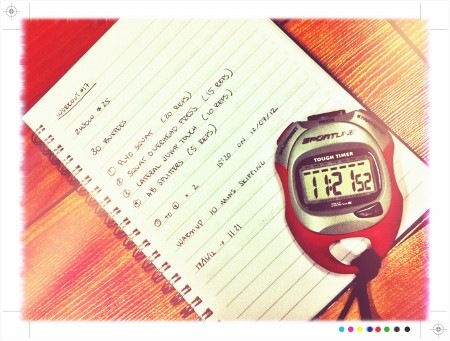 WORKOUT #17
ZUZANA #25
30 BURPEES
① PLYO SQUAT (20 REPS)
② SQUAT OVERHEAD PRESS (15 REPS)
③ LATERAL JUMP TOUCH (10 REPS)
④ AB SPLITTERS (5 REPS)
① TO ④ × 2
15:20 ON 12/07/12
WARM UP 10 MINS SKIPPING
→ 11:21
SPORTLINE
TOUGH TIMER
11:21 52